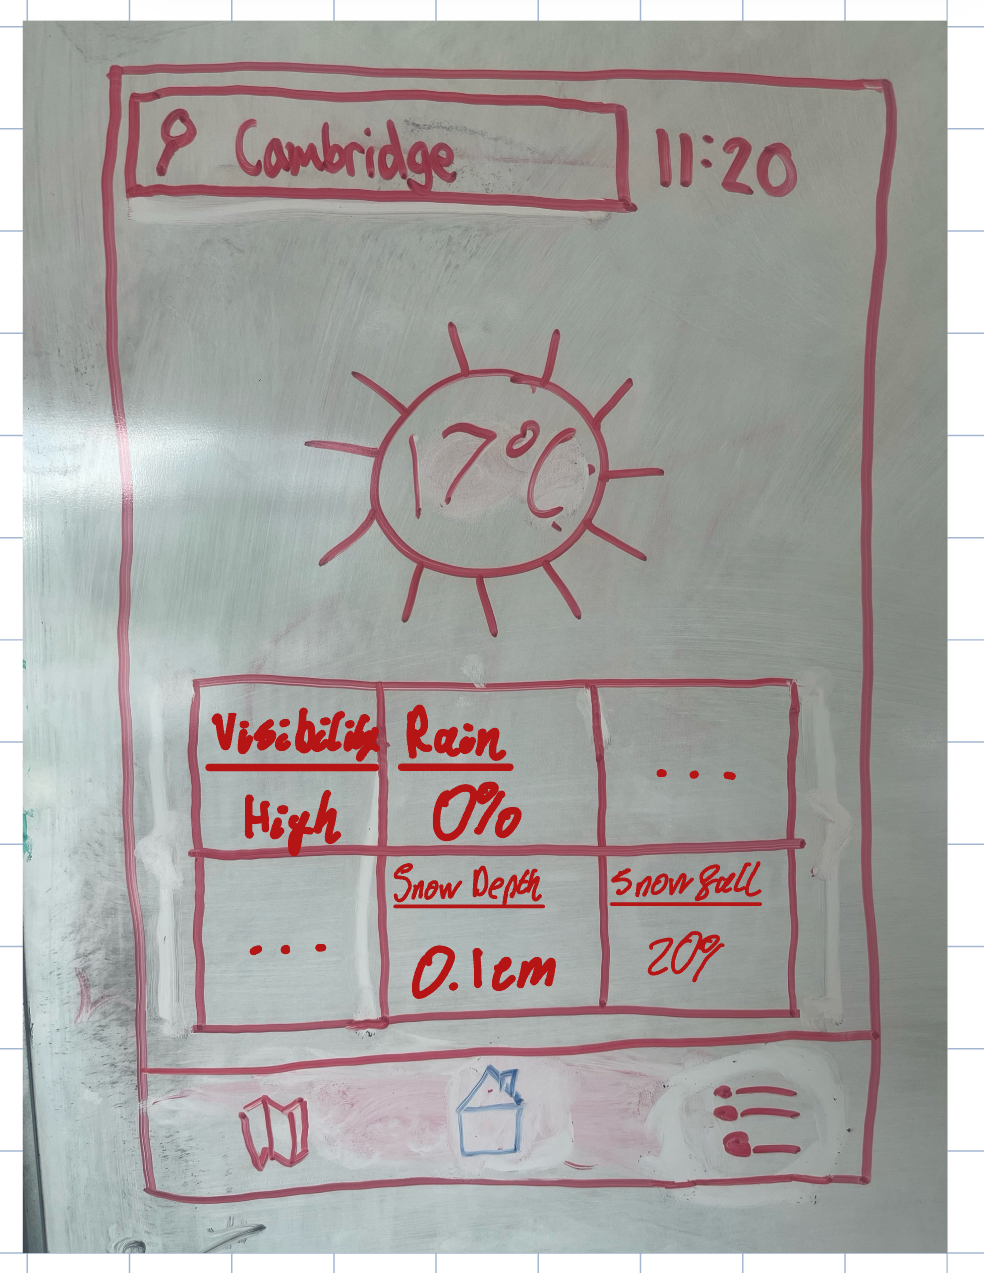 Cambridge
11:20
17°C
Visibility
Rain
...
High
0%
Snow Depth
Snowfall
...
0.1cm
20%